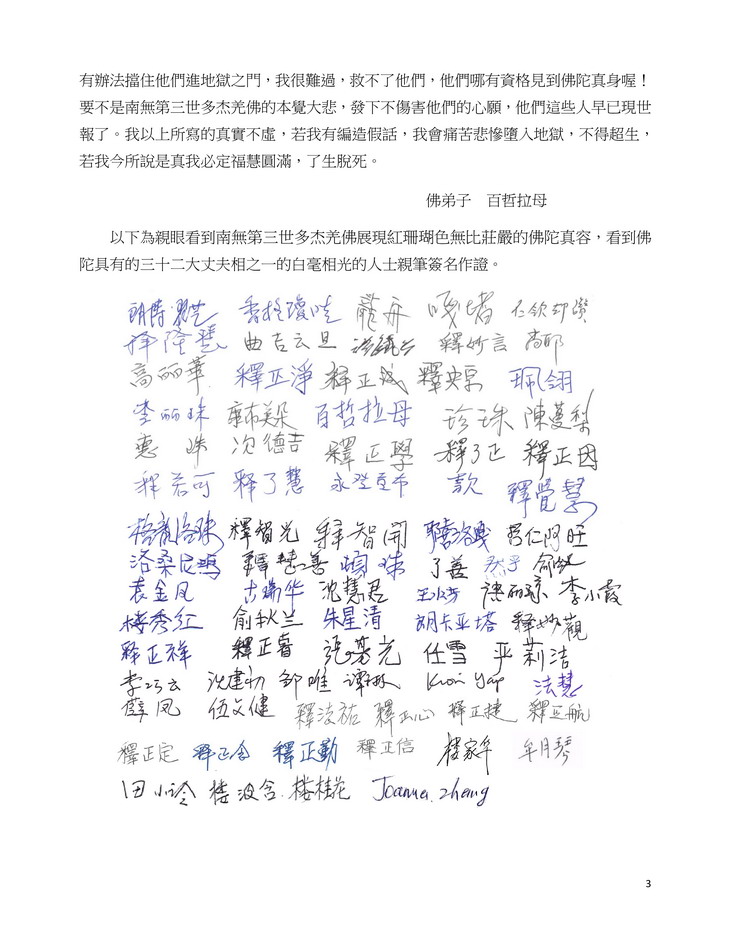 有辦法擋住他們進地獄之門，我很難過，救不了他們，他們哪有資格見到佛陀真身喔！
要不是南無第三世多杰羌佛的本覺大悲，發下不傷害他們的心願，他們這些人早已現世
報了。我以上所寫的真實不虛，若我有編造假話，我會痛苦悲慘墮入地獄，不得超生，
若我今所說是真我必定福慧圓滿，了生脫死。
佛弟子　百哲拉母
以下為親眼看到南無第三世多杰羌佛展現紅珊瑚色無比莊嚴的佛陀真容，看到佛
陀具有的三十二大丈夫相之一的白毫相光的人士親筆簽名作證。
香格瓊哇 龍舟 嘎堵 仁欽却讚
釋隆慧 曲吉云旦 釋妙言
高丽華 釋正淨 釋正成 珮翎
李丽珠 百哲拉母 珍珠 陳蔓梨
惠珠 次德吉 釋正學 釋了正 釋正因
釋若可 释了慧 釋覺慧
釋智光 釋智開 昂仁阿旺
洛桑尼瑪 釋慧善 頓珠 了善
袁金凤 古瑞华 沈慧君 李小霞
楼秀红 俞秋兰 朱星清 胡卡亚塔 釋妙觀
释正祥 釋正睿 任雪 严莉洁
李巧云 沈建初 邹唯 谭敏 法慧
薛凤 伍文健 釋法祐 釋正心 釋正捷 釋正航
釋正定 釋正念 釋正勤 釋正信 楼家牟 牟月琴
田小玲 楼波含 楼桂花 Joanna. zheng
3